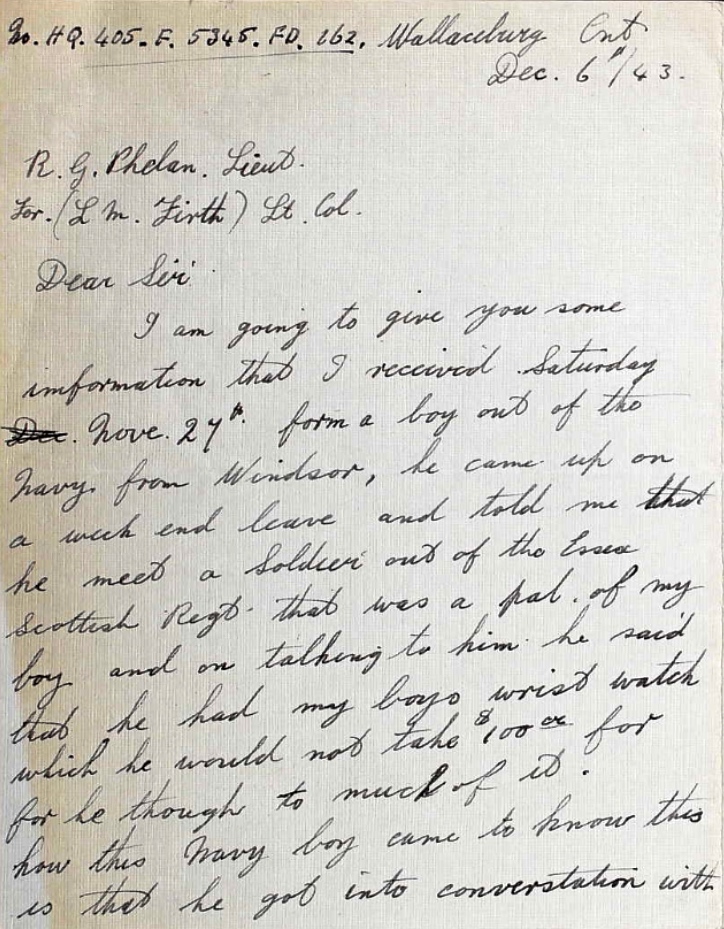 No. HQ. 405. F. 5345. FD. 162. Wallaceburg Ont
Dec. 6th/43.
R. G. Phelan. Lieut.
For. (L M. Firth) Lt. Col.
Dear Sir
I am going to give you some
imformation that I received Saturday
Dec. Nove. 27th. form a boy out of the
Navy. from Windsor, he came up on
a week end leave and told me that
he meet a Soldier out of the Essex
Scottish Regt. that was a pal. of my
boy and on talking to him he said
that he had my boys wrist watch
which he would not take $100 for
for he though to much of it.
how this Navy boy came to know this
is that he got into converstation with